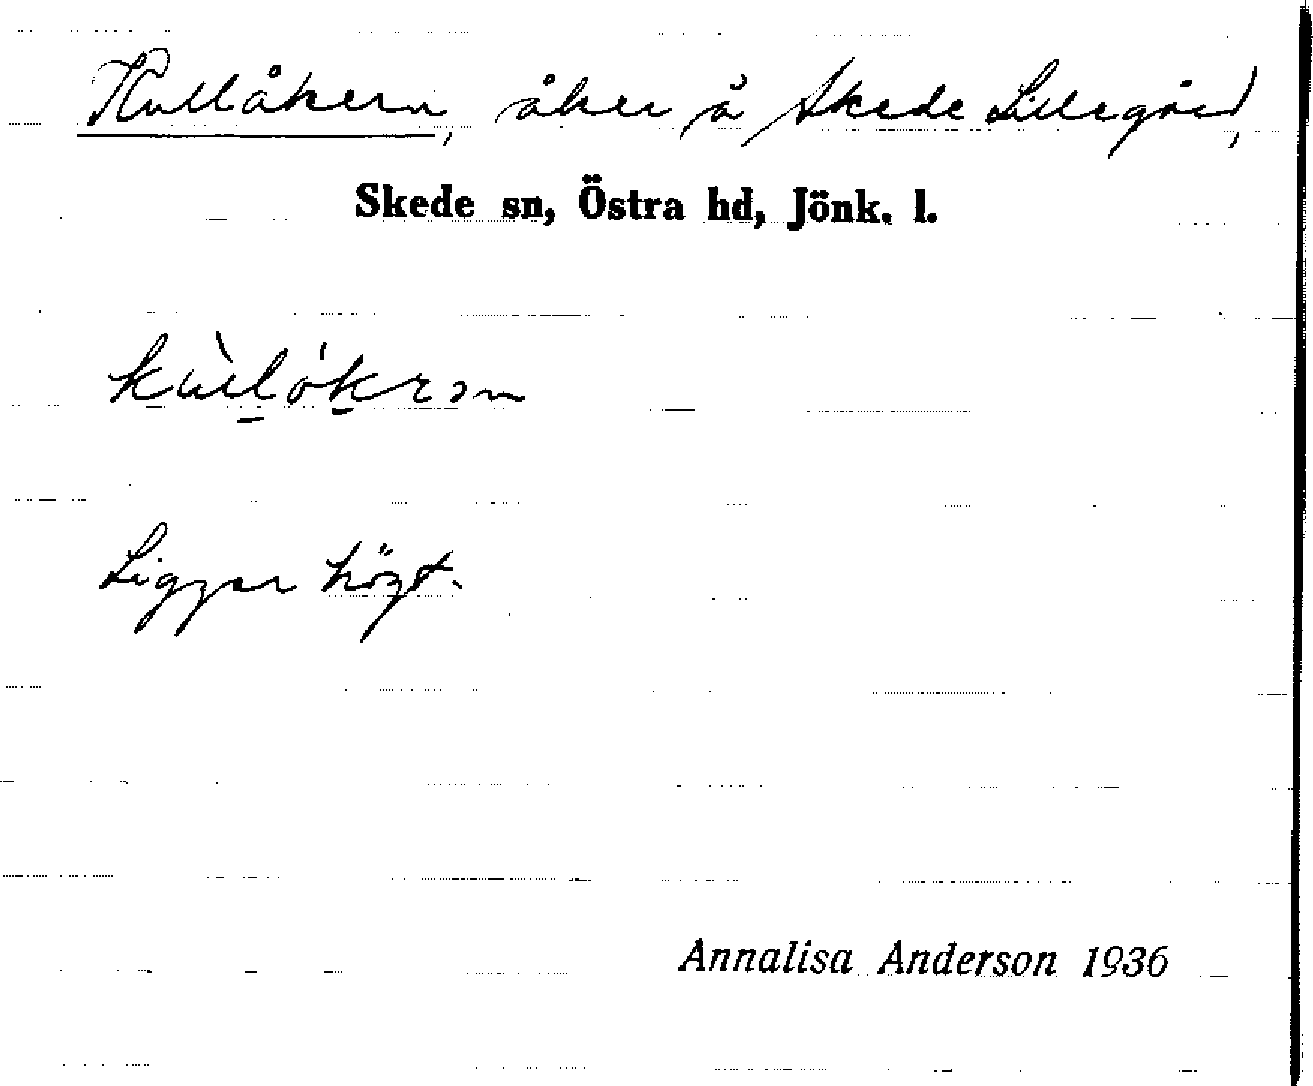 Kullåkern, åker å Skede Lillegård,
Skede sn, Östra hd, Jönk. l.
kùlókrən
Ligger högt.
Annalisa Anderson 1936